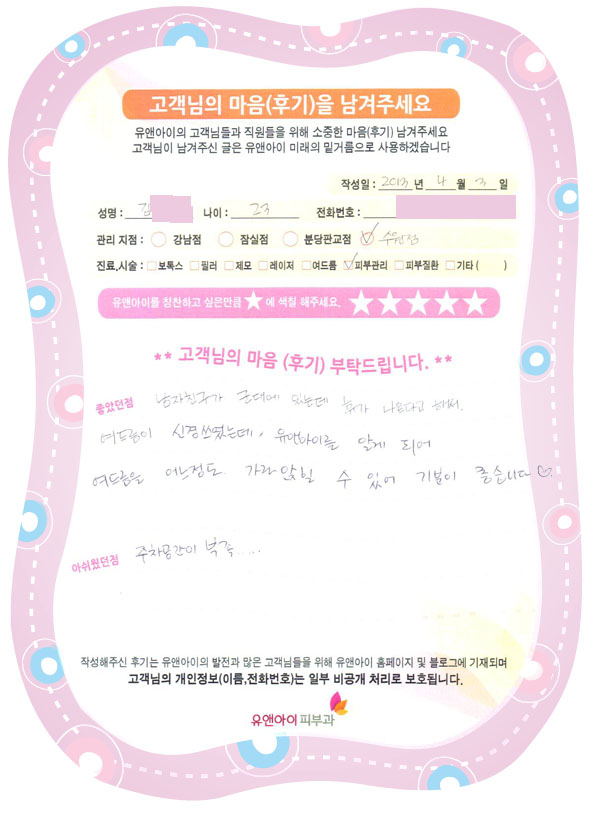 고객님의 마음(후기)을 남겨주세요
유앤아이의 고객님들과 직원들을 위해 소중한 마음(후기) 남겨주세요
고객님이 남겨주신 글은 유앤아이 미래의 밑거름으로 사용하겠습니다
작성일 : 2013 년 4 월 3 일
성명 : 김 나이 : 23 전화번호 :
관리 지점 : 강남점 잠실점 분당판교점 수원점
진료,시술 : 보톡스 필러 제모 레이저 여드름 피부관리 피부질환 기타 ( )
유앤아이를 칭찬하고 싶은만큼 ★ 에 색칠 해주세요. ★★★★★
** 고객님의 마음 (후기) 부탁드립니다. **
좋았던점 남자친구가 군대에 있는데 휴가 나온다고 해서.
여드름이 신경쓰였는데, 유앤아이를 알게 되어
여드름을 어느정도 가라앉힐 수 있어 기분이 좋습니다 ♡.
아쉬웠던점 주차공간이 부족.....
작성해주신 후기는 유앤아이의 발전과 많은 고객님들을 위해 유앤아이 홈페이지 및 블로그에 기재되며
고객님의 개인정보(이름,전화번호)는 일부 비공개 처리로 보호됩니다.
유앤아이 피부과